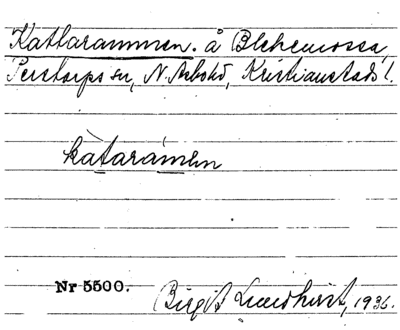 Kattarammen. å Blekemossa,
Perstorps sn, N. Åsbohd, Kristianstads l.
kàtarámen
Nr 5500.
Birgit Lundhvist, 1936.